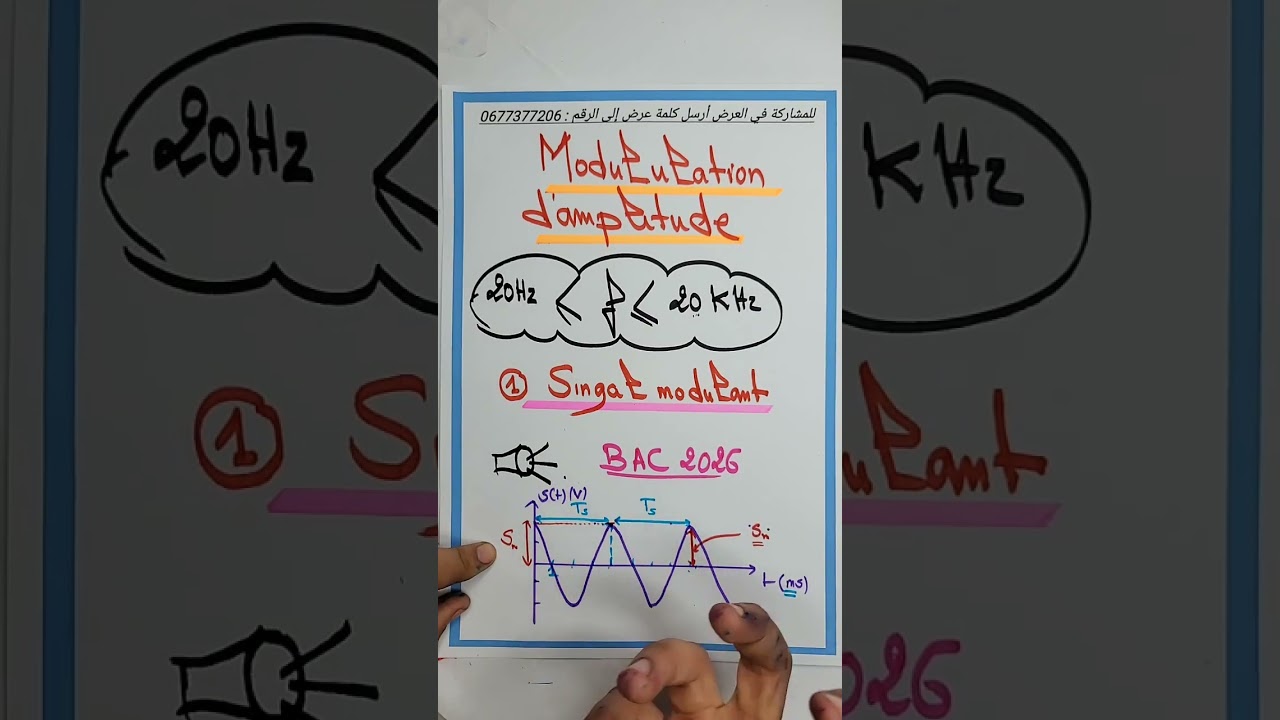 للمشاركة في العرض أرسل كلمة عرض إلى الرقم : 0677377206
Modulation
d'amplitude
20Hz < f ≤ 20 KHz
① Singal modulant
BAC 2026
S(t)(V)
Ts Ts
Sm Sm
1
t(ms)